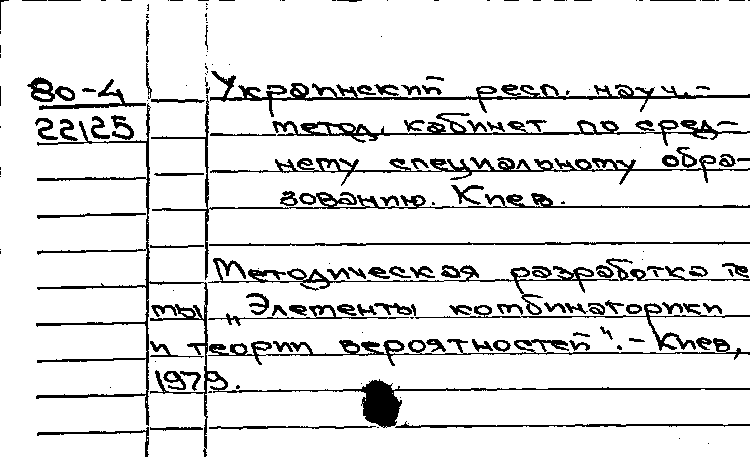 80-4 Украинский респ. науч.-
22125 метод. кабинет по сред-
нему специальному обра-
зованию. Киев.
Методическая разработка те
мы „Элементы комбинаторики
и теории вероятностей“. - Киев,
1979.